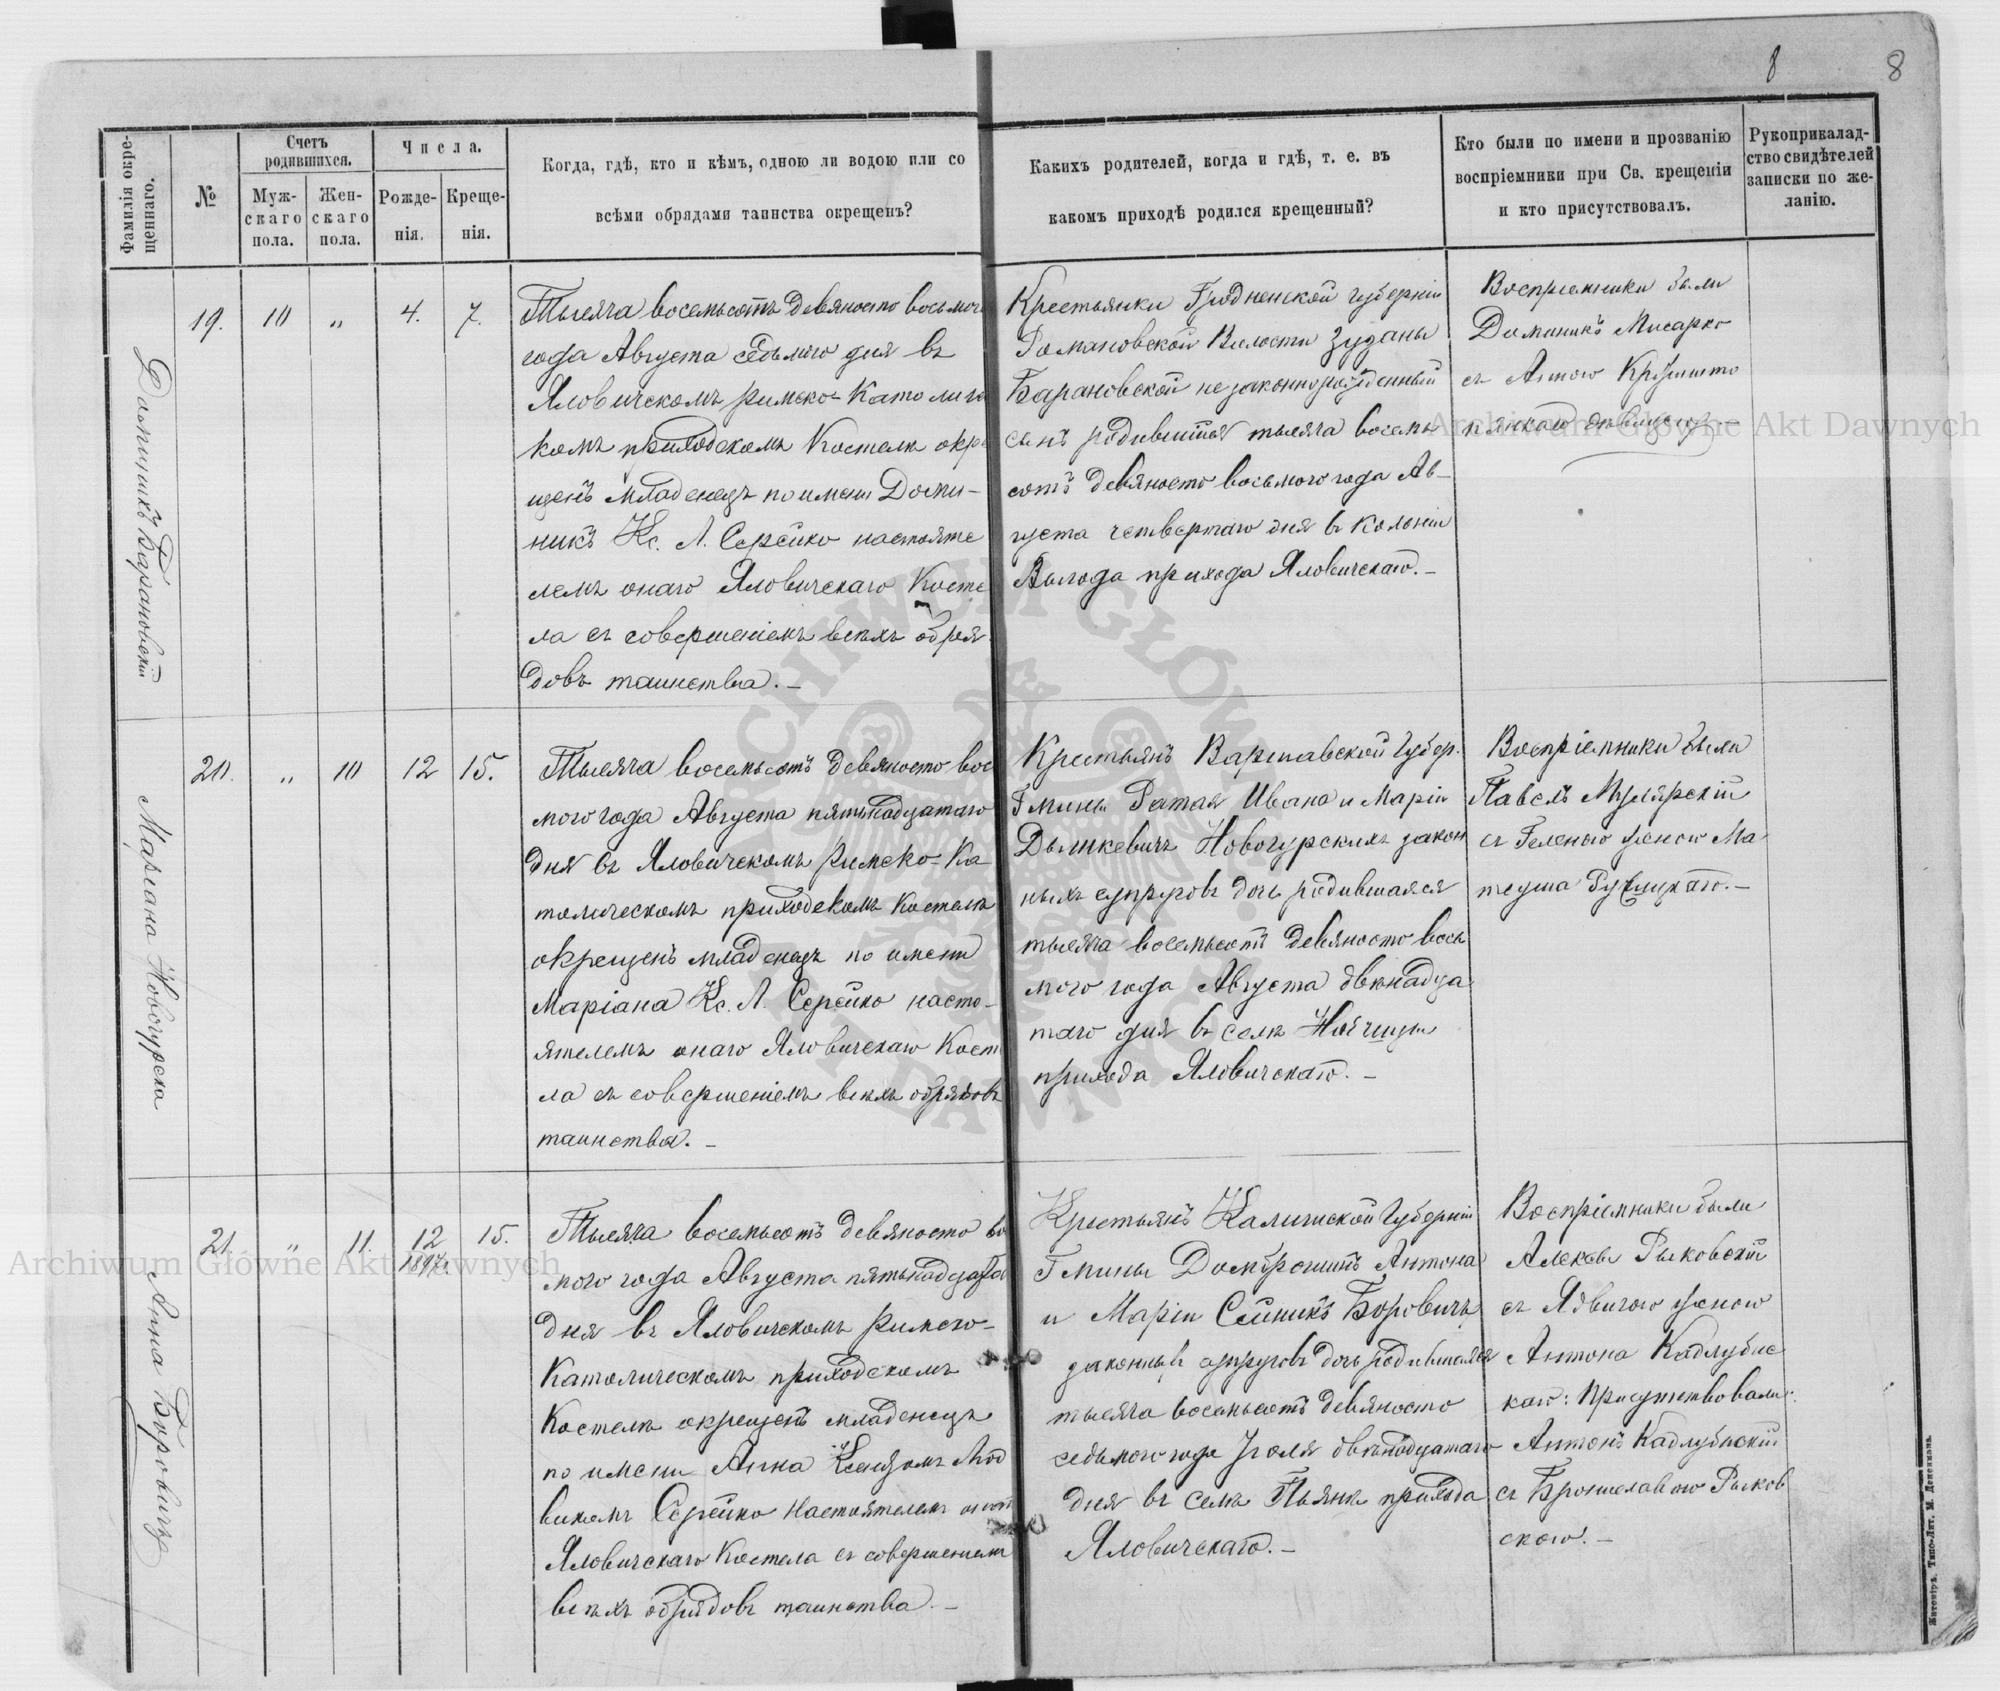 8 8
Фамилія окре-
щеннаго.
№
Счетъ
родившихся.
Муж-
скаго
пола.
Жен-
скаго
пола.
Числа.
Рожде-
нія.
Креще-
нія.
Когда, гдѣ, кто и кѣмъ, одною ли водою или со
всѣми обрядами таинства окрещенъ?
Какихъ родителей, когда и гдѣ, т. е. въ
какомъ приходѣ родился крещенный?
Кто были по имени и прозванію
воспріемники при Св. крещеніи
и кто присутствовалъ.
Рукоприкалад-
ство свидѣтелей
записки по же-
ланію.
Доминикъ Барановскій
19. 10 „ 4. 7.
Тысяча восемьсотъ девяносто восьмого
года Августа седьмого дня въ
Яловичскомъ римско-Католичес
комъ приходскомъ Костелѣ окре
щенъ младенецъ по имени Доми-
никъ Кс. Л. Серейко настояте
лемъ онаго Яловичскаго Косте
ла съ совершеніемъ всѣхъ обря
довъ таинства. –
Крестьянки Гродненской губерніи
Романовской Волости Зузаны
Барановской незаконнорожденный
сынъ родившійся тысяча восемь
сотъ девяносто восьмого года Ав-
густа четвертаго дня въ колоніи
прихода Яловичскаго. –
Воспріемники были
Доминикъ Мисарко
съ Анною
дѣвицею. –
Маріана Новогурска
20. „ 10 12 15.
Тысяча восемьсотъ девяносто вос
мого года Августа пятьнадцатаго
дня въ Яловичскомъ Римско-Ка
толическомъ приходскомъ Костелѣ
окрещенъ младенецъ по имени
Маріана Кс. Л. Серейко насто-
ятелемъ онаго Яловичскаго Косте
ла съ совершеніемъ всѣхъ обрядовъ
таинства. –
Крестьянъ Варшавской Губер.
Гмины Ратая Ивана и Маріи
Дымкевичъ Новогурскихъ закон
ныхъ супруговъ дочь родившаяся
тысяча восемьсотъ девяносто вось
мого года Августа двѣнадца
таго дня въ селѣ
прихода Яловичскаго. –
Воспріемники были
Павелъ Мулярскій
съ Геленою женою Ма
теуша
Анна Боровичъ
21. „ 11. 12 15.
1897г.
Тысяча восемьсотъ девяносто во
мого года Августа пятьнадцатаго
дня въ Яловичскомъ Римско-
Католическомъ приходскомъ
Костелѣ окрещенъ младенецъ
по имени Анна Ксендзомъ Люд
викомъ Серейко Настоятелемъ онаго
Яловичскаго Костела съ совершеніемъ
всѣхъ обрядовъ таинства. –
Крестьянъ Калишской Губерніи
Гмины Антона
и Маріи Сейникъ Боровичъ
законныхъ супруговъ дочь родившаяся
тысяча восемьсотъ девяносто
седьмого года Іюля двѣнадцатаго
дня въ селѣ Пьяне прихода
Яловичскаго. –
Воспріемники были
Алексы Рыковскій
съ Ядвигою женою
Антона Кадлубис
каго: Присутствовали:
Антонъ Кадлубискій
съ Брониславою Рыков
скою. –
Житоміръ. Типо-Лит. М. Дененмана.
Archiwum Główne Akt Dawnych
Archiwum Główne Akt Dawnych
ARCHIWUM GŁÓWNE AKT DAWNYCH